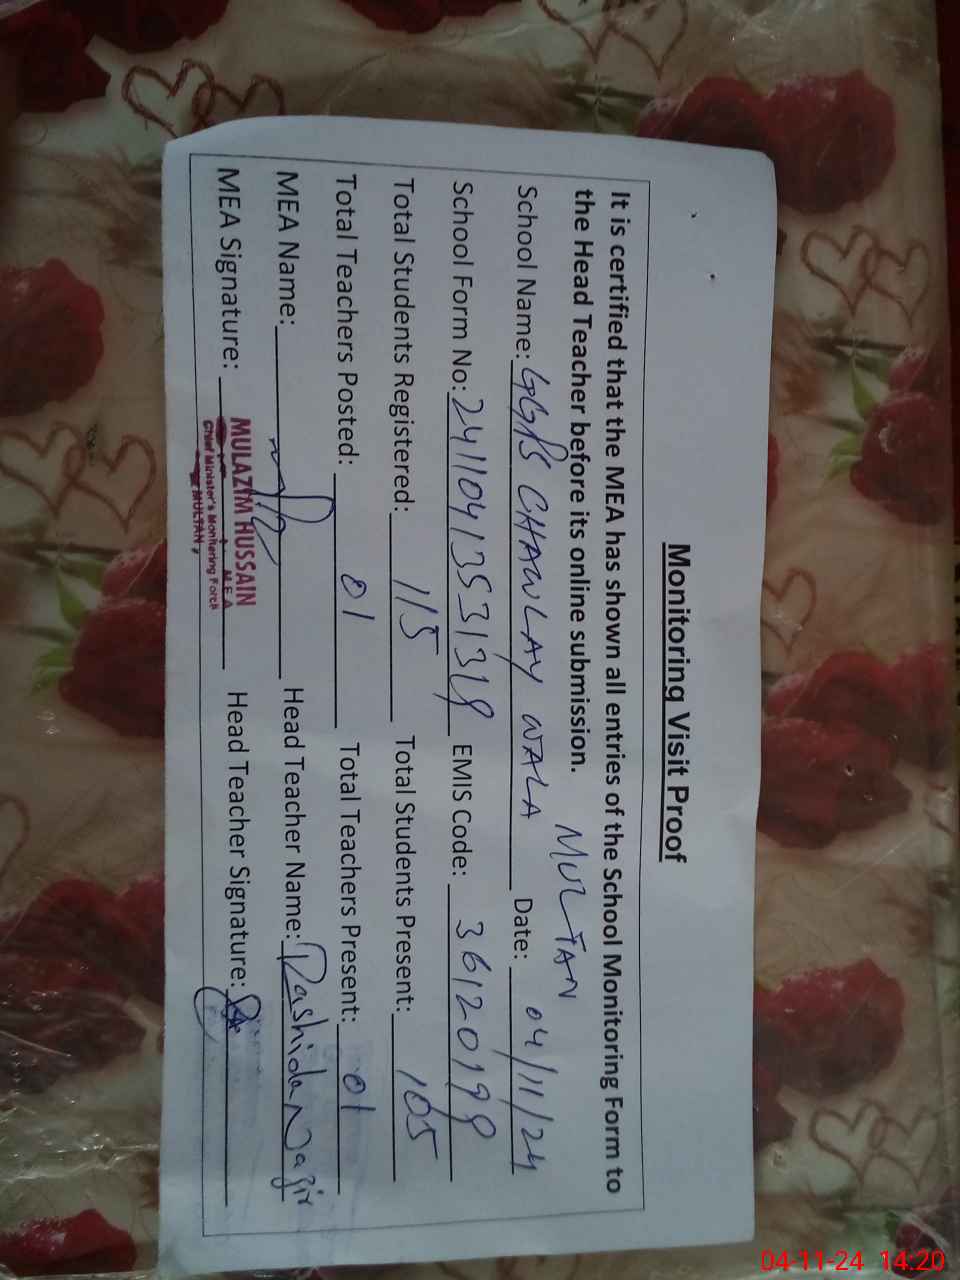 Monitoring Visit Proof
It is certified that the MEA has shown all entries of the School Monitoring Form to
the Head Teacher before its online submission.
MULTAN
School Name: GGPS CHAWLAY WALA Date: 04/11/24
School Form No: 241104135313 EMIS Code: 36120199
Total Students Registered: 115 Total Students Present: 105
Total Teachers Posted: 01 Total Teachers Present: 01
MEA Name: Head Teacher Name: Rashida Nazir
MEA Signature: Head Teacher Signature:
MULAZIM HUSSAIN
M E A
Chief Minister's Monitering Force
MULTAN
04-11-24 14:20